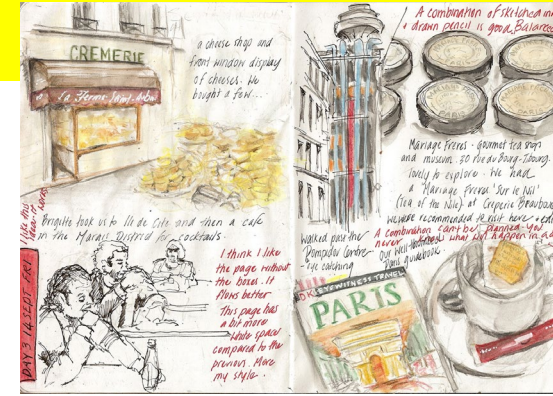 CREMERIE
La Ferme Saint-Aubin
a cheese shop and
front window display
of cheeses. We
bought a few...
I like this
idea - it works
Brigitte took us to Ill de Cite and then a cafe
in the Marais District for cocktails.
I think I like
the page without
the boxes. It
flows better
This page has
a bit more
white space
compared to the
previous. More
my style.
DAY 3 14 SEPT FRI
A combination of sketched ink
+ drawn pencil is good. Balanced
MARIAGE FRERES
PARIS
Mariage Freres - Gourmet tea shop
and museum. 30 rue du Bourg-Tibourg.
lovely to explore. We had
a 'Mariage Freres' 'Sur le Nil'
(Tea of the Nile) at Creperie Beaubourg
we were recommended to visit here
A combination can't be planned - You
never know what will happen in a
walked past the
Pompidou Centre
- eye catching
Our well-thumbed
Paris guidebook
DK EYEWITNESS TRAVEL
PARIS